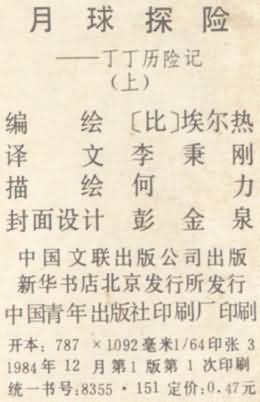 月球探险
——丁丁历险记
(上)
编 绘 〔比〕埃尔热
译 文 李秉刚
描 绘 何 力
封面设计 彭金泉
中国文联出版公司出版
新华书店北京发行所发行
中国青年出版社印刷厂印刷
开本: 787 ×1092毫米1/64印张 3
1984年 12 月第1版第 1 次印刷
统一书号:8355·151 定价:0.47元